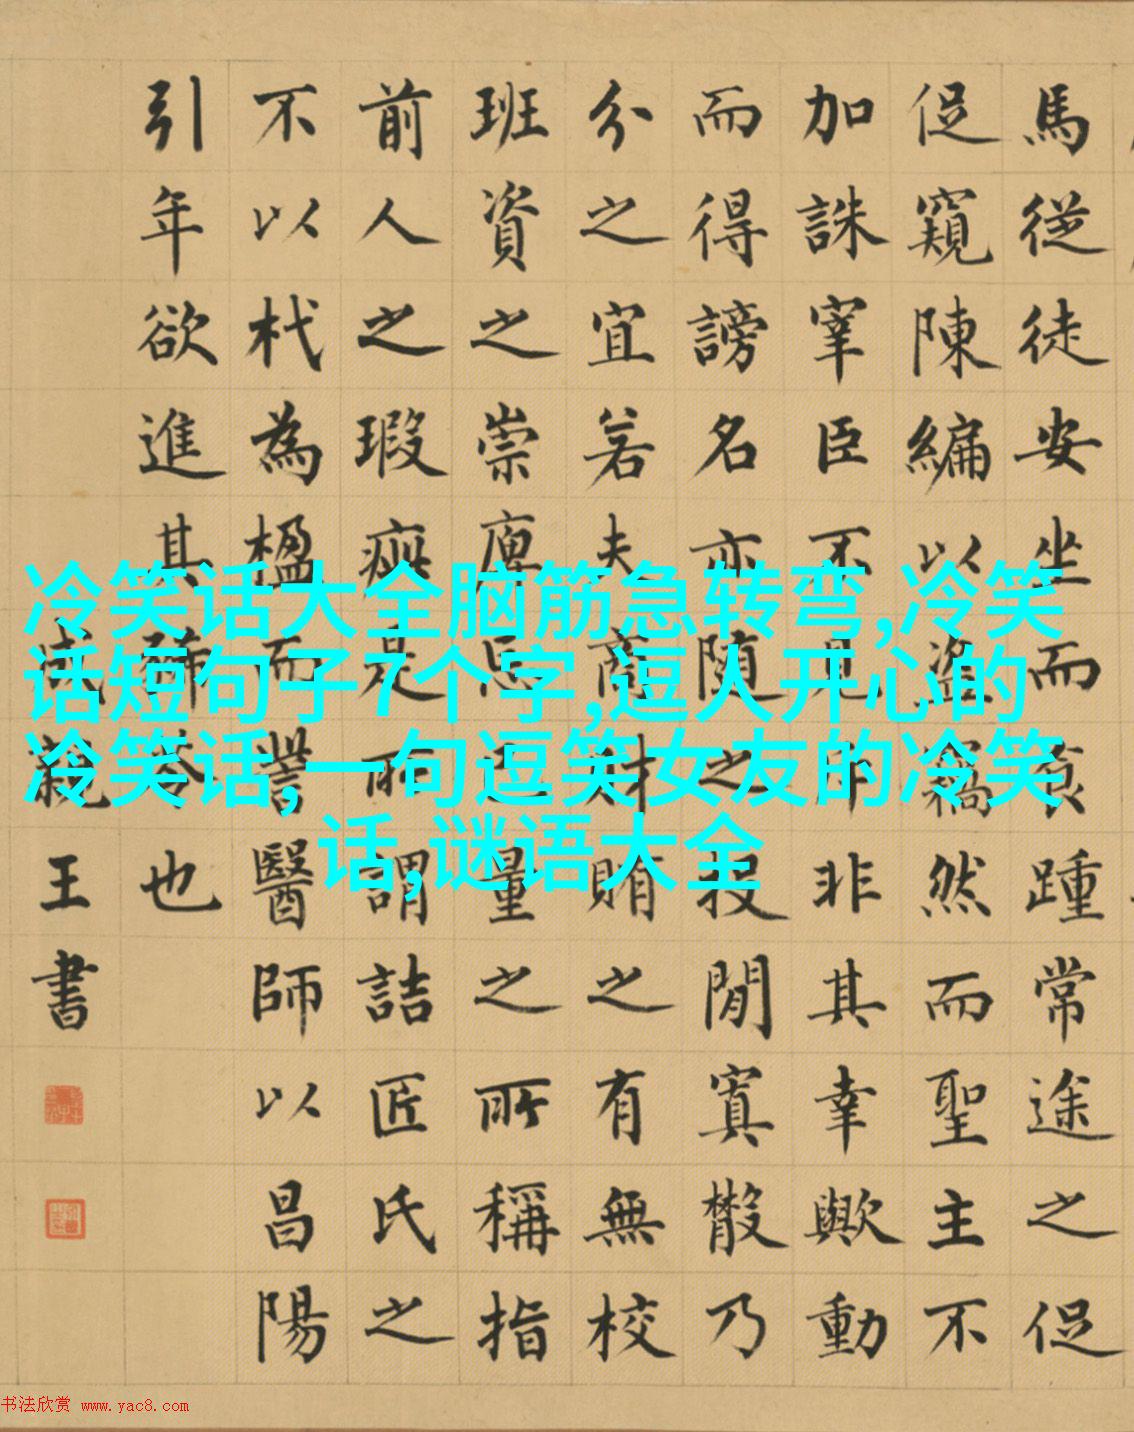 馬從徒安坐而食踵常途之促
促窺陳編以盜竊然而聖主不
加誅宰臣不見斥非其幸歟動
而得謗名亦随之投閒寘散乃
分之宜若夫商財賄之有無校
班資之崇庳忘己量之所稱指
前人之瑕疵是所謂詰匠氏之
不以杙為楹而訾醫師以昌陽
引年欲進其豨苓也
成親王書
冷笑话大全脑筋急转弯,冷笑
话短句子7个字,逗人开心的
冷笑话,一句逗笑女友的冷笑
话,谜语大全
书法欣赏 www.yac8.com